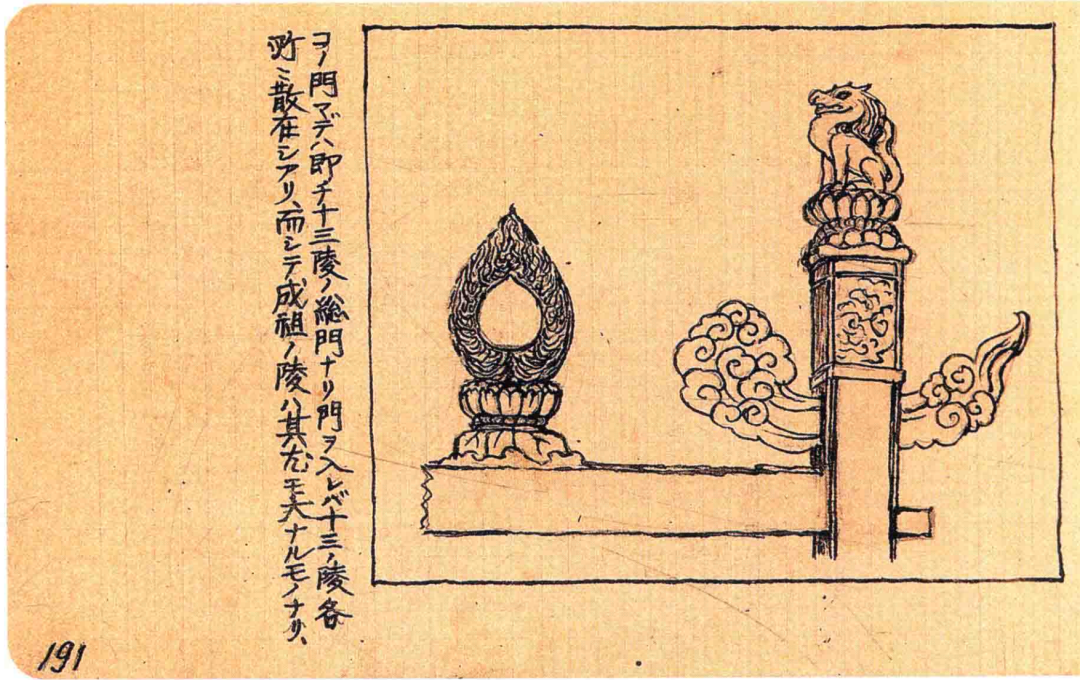 コノ門マデハ即チ十三陵ノ総門ナリ門ヲ入レバ十三ノ陵各
所ニ散在シアリ、而シテ成祖ノ陵ハ其尤モ大ナルモノナリ、
191